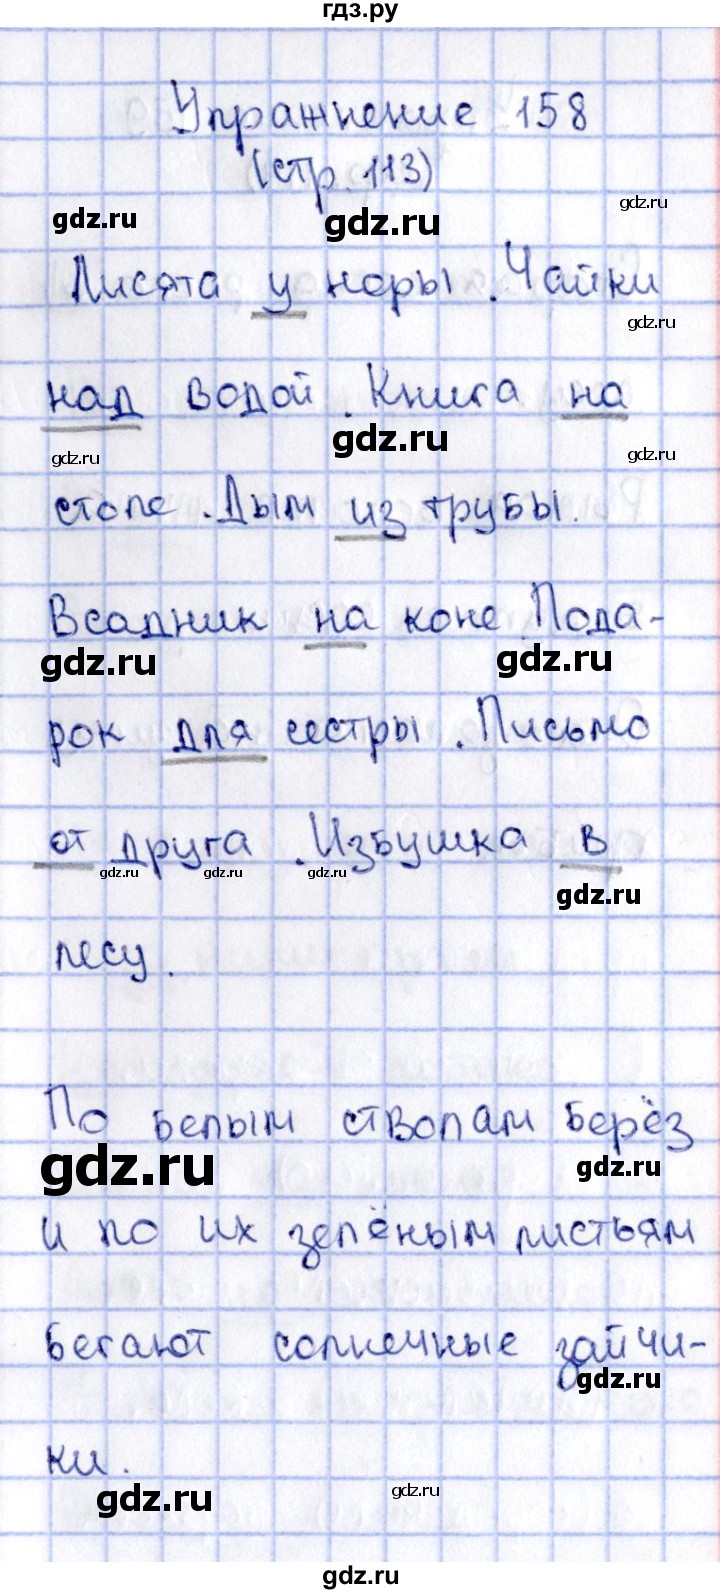 гдз.ру
Упражнение 158
(стр. 113)
gdz.ru gdz.ru gdz.ru
Лисята у норы. Чайки
gdz.ru
над водой. Книга на
gdz.ru gdz.ru gdz.ru
столе. Дым из трубы.
Всадник на коне. Пода-
gdz.ru gdz.ru
рок для сестры. Письмо
от друга. Избушка в
gdz.ru gdz.ru gdz.ru gdz.ru
лесу.
По белым стволам берёз
gdz.ru gdz.ru
и по их зелёным листьям
бегают солнечные зайчи-
gdz.ru
ки.
gdz.ru gdz.ru
гдз.ру